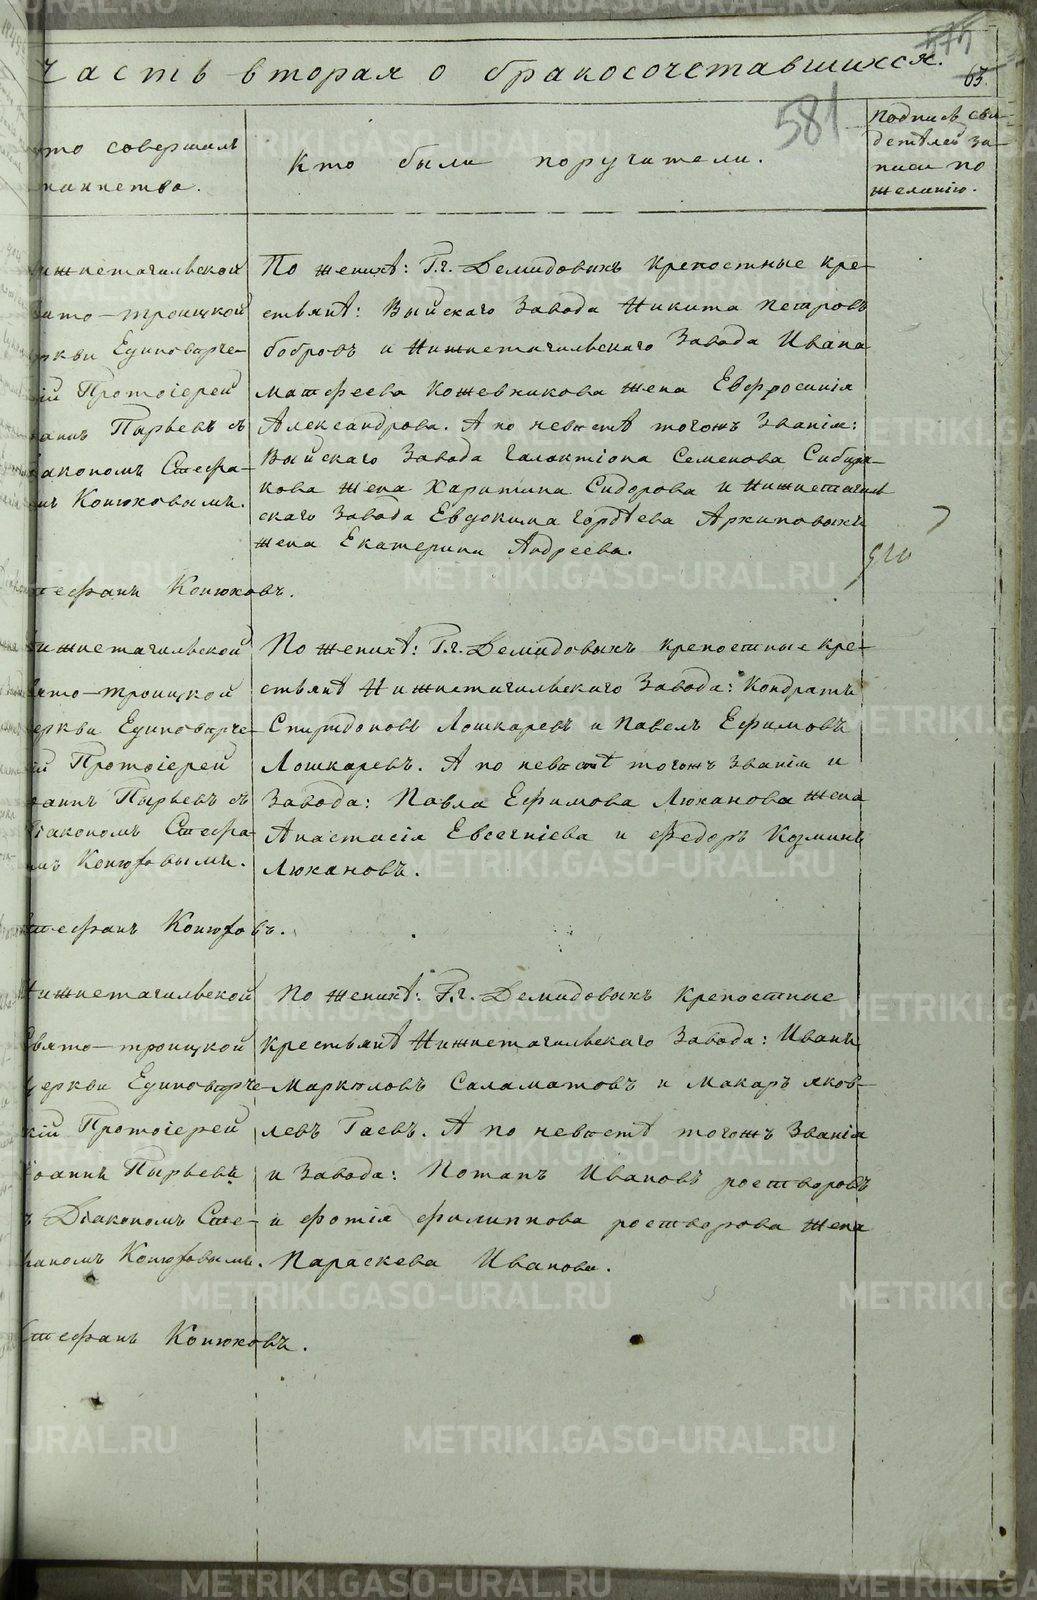 575
Часть вторая о бракосочетавшихся.
63.
581
Кто совершалъ
таинство.
Кто были поручители.
Подпись сви-
дѣтелей за-
писи по
желанію.
Нижнетагильской
Свято-Троицкой
Церкви Единовѣрче-
скій Протоіерей
Іоаннъ Пырьевъ съ
Діакономъ Стефа-
номъ Конюховымъ.
Стефанъ Конюховъ.
По женихѣ: Г.г. Демидовыхъ крепостные кре-
стьянѣ: Выйскаго Завода Никита Петровъ
Бобровъ и Нижнетагильскаго Завода Ивана
Матфеева Кожевникова жена Евфросинія
Александрова. А по невѣстѣ тогожъ Званія:
Выйскаго Завода Галактіона Семенова Сибиря-
кова жена Харитина Сидорова и Нижнетагиль
скаго Завода Евдокима Гордѣева Архиповыхъ
жена Екатерина Андреева.
Нижнетагильской
Свято-Троицкой
Церкви Единовѣрче-
скій Протоіерей
Іоаннъ Пырьевъ съ
Діакономъ Стефа-
номъ Конюховымъ.
Стефанъ Конюховъ.
По женихѣ: Г.г. Демидовыхъ крепостные кре-
стьянѣ Нижнетагильскаго Завода: Кондратъ
Спиридоновъ Лошкаревъ и Павелъ Ефимовъ
Лошкаревъ. А по невѣстѣ тогожъ Званія и
Завода: Павла Ефимова Люханова жена
Анастасія Евсегніева и Федоръ Козминъ
Люхановъ.
Нижнетагильской
Свято-Троицкой
Церкви Единовѣрче-
скій Протоіерей
Іоаннъ Пырьевъ
съ Діакономъ Сте-
фаномъ Конюховымъ.
Стефанъ Конюховъ.
По женихѣ: Г.г. Демидовыхъ крепостные
крестьянѣ Нижнетагильскаго Завода: Иванъ
Маркеловъ Саламатовъ и Макаръ Яков-
левъ Гаевъ. А по невѣстѣ тогожъ Званія
и Завода: Потапъ Ивановъ Ростворовъ
и Фотія Филиппова Ростворова жена
Параскева Иванова.
METRIKI.GASO-URAL.RU